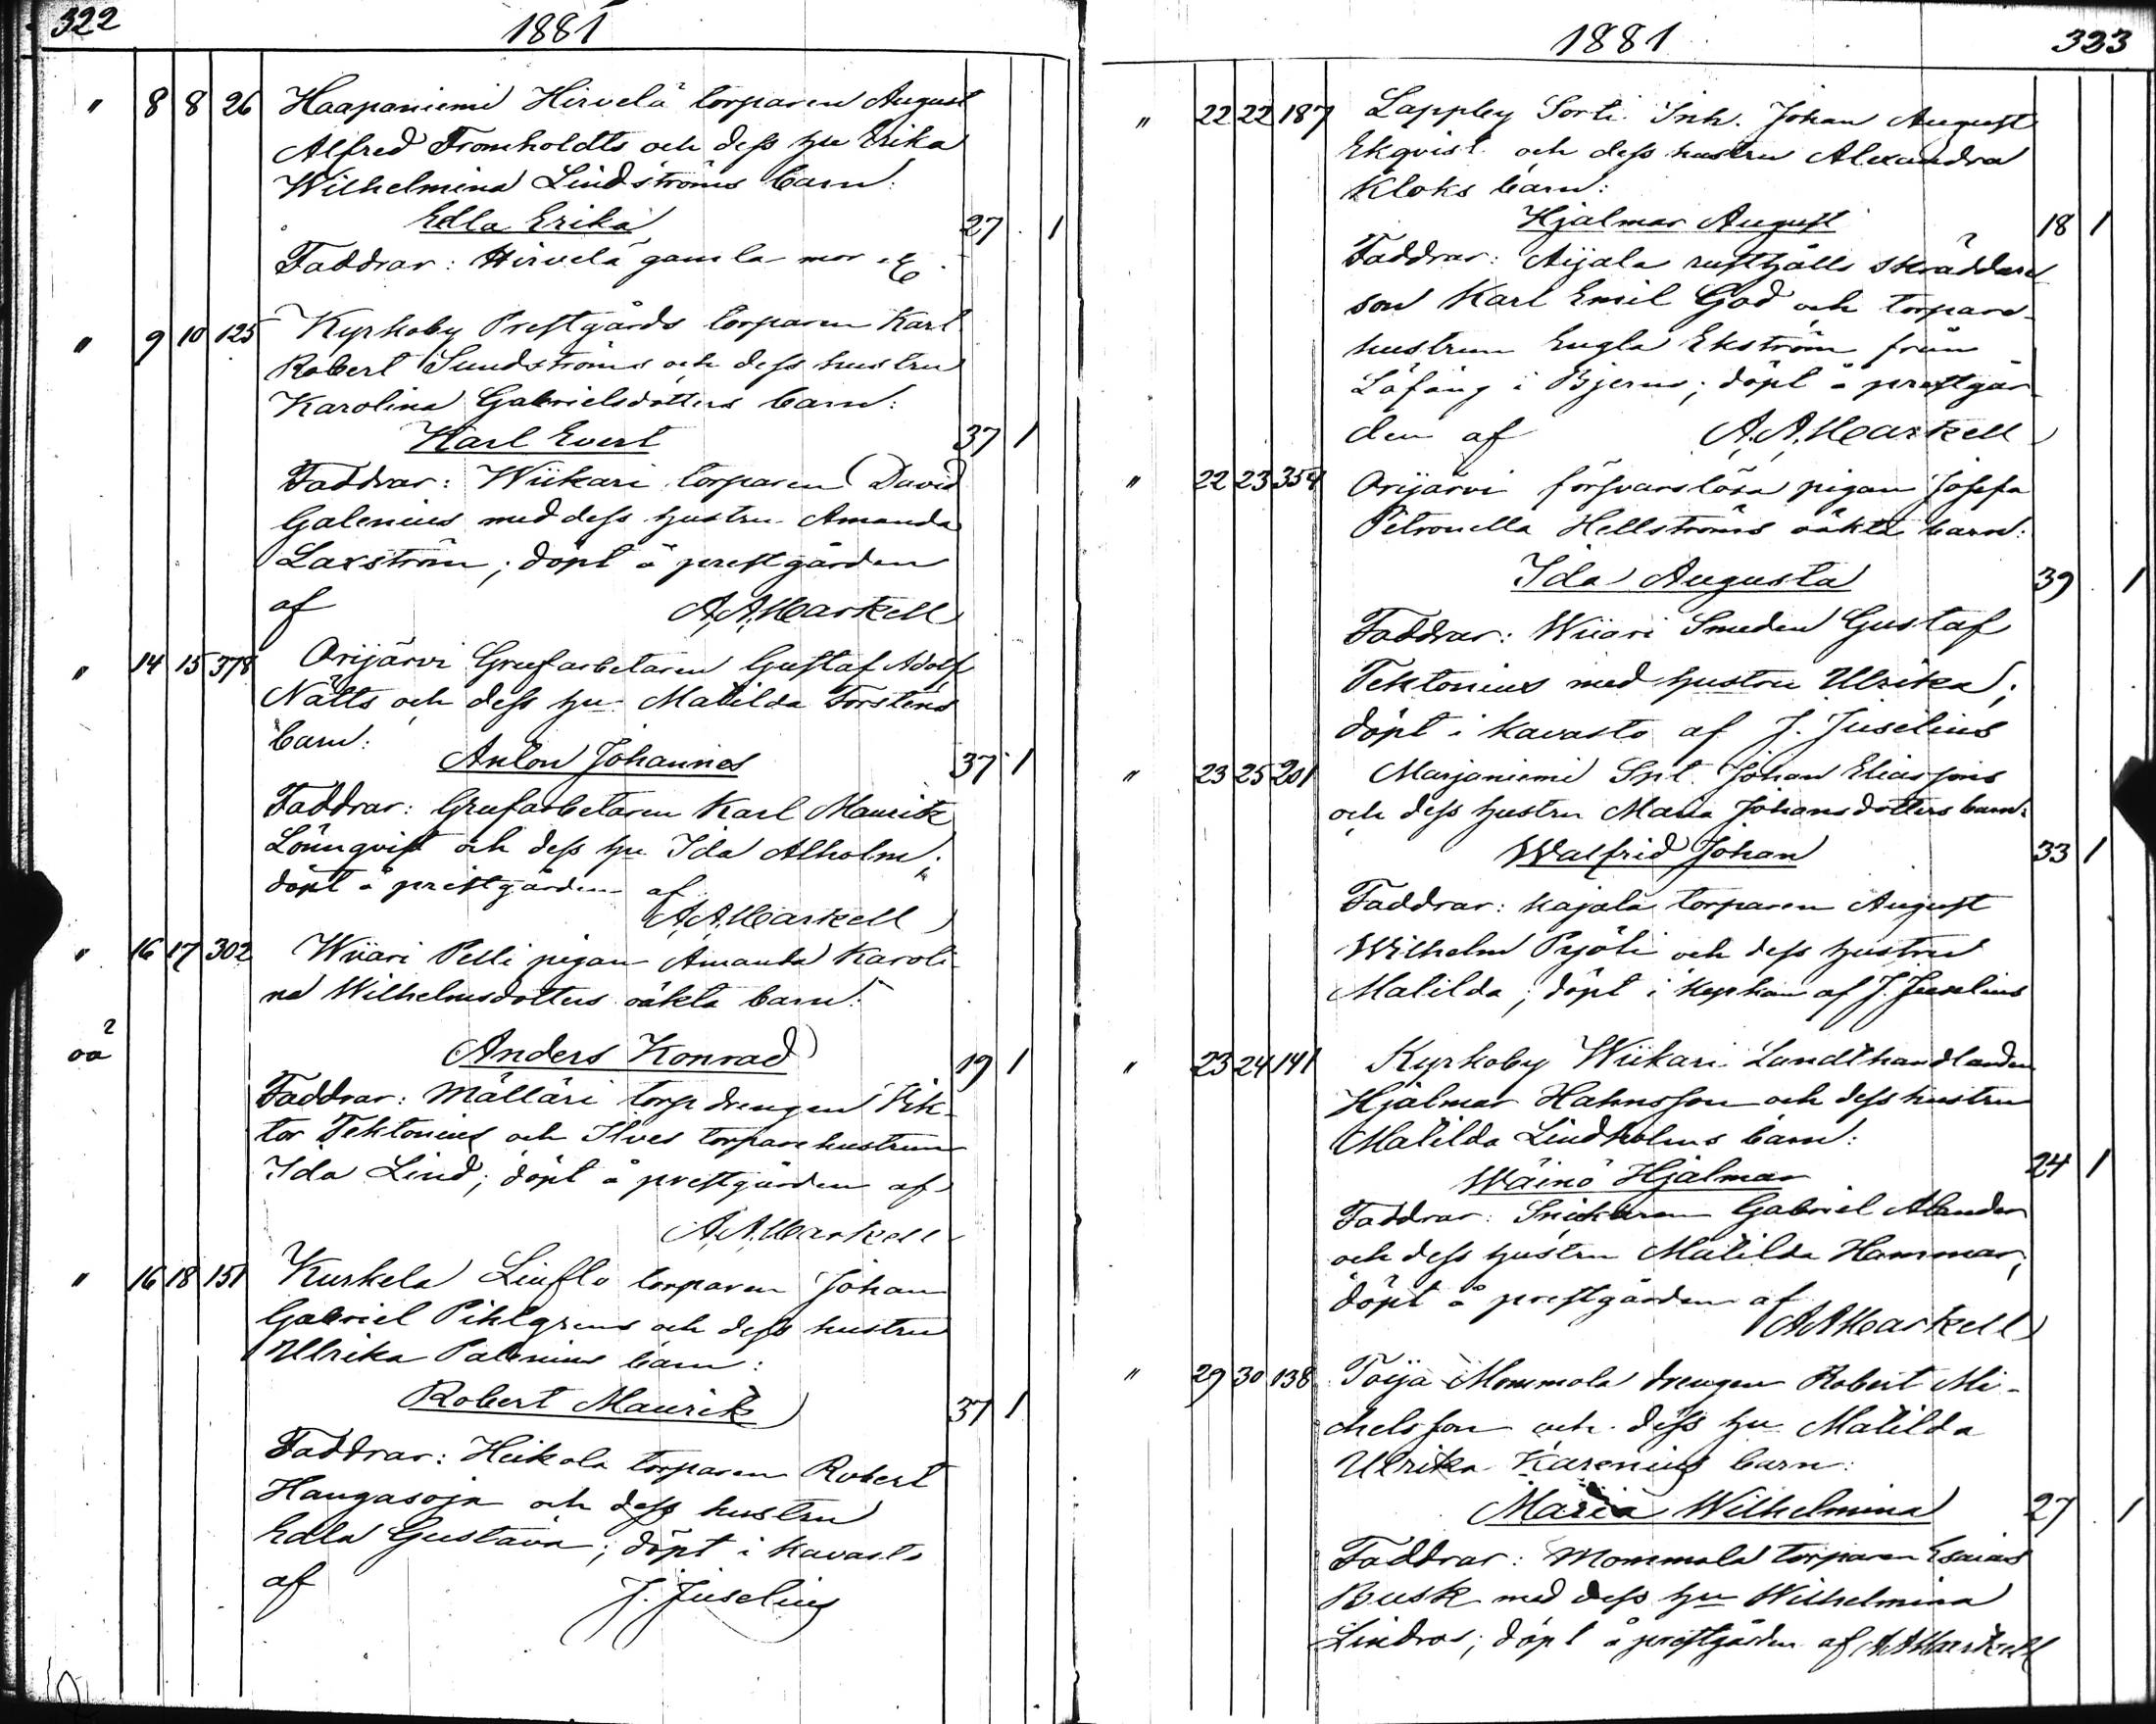 322
1881
" 8 8 26 Haapaniemi Hirvelä torparen August
Alfred Fromholdts och dess hu Erika
Wilhelmina Lindströms barn:
Edla Erika 27 1
Faddrar: Hirvelä gamla mor &.
" 9 10 125 Kyrkoby Prestgårds torparen Karl
Robert Sundströms och dess hustru
Karolina Gabrielsdotters barn:
Karl Evert 37 1
Faddrar: Wiikari torparen David
Galenius med dess hustru Amanda
Laxström; döpt å prestgården
af A. A. Markell
" 14 15 378 Orijärvi Grufarbetaren Gustaf Adolf
Nätts och dess hu Matilda Forsténs
barn:
Anton Johannes 37 1
Faddrar: Grufarbetaren Karl Mauritz
Lönnqvist och dess hu Ida Alholm;
döpt å prestgården af
A. A. Markell
" 16 17 302 Wiiari Pelli pigan Amanda Karoli-
na Wilhelmsdotters oäkta barn:
oä Anders Konrad 19 1
Faddrar: Mälläri torp drengen Vik-
tor Tektonius och Ilves torparehustrun
Ida Lind; döpt å prestgården af
A. A. Markell
" 16 18 151 Kurkela Linflo torparen Johan
Gabriel Pihlgrens och dess hustru
Ullrika Palenius barn:
Robert Maurits 37 1
Faddrar: Heikola torparen Robert
Haugasoja och dess hustru
Edla Gustava; döpt i Kavasto
af J. Juselius
1881
323
" 22 22 187 Lappby Sorti Inh. Johan August
Ekqvist och dess hustru Alexandra
Kloks barn:
Hjalmar August 18 1
Faddrar: Aijala rusthålls skräddare
son Karl Emil God och torpare-
hustrun Eugla Ekström från
Löfäng i Bjerno; döpt å prestgår-
den af A. A. Markell
" 22 23 354 Orijärvi försvarslösa pigan Josefa
Petronella Hellströms oäkta barn:
Ida Augusta 39 1
Faddrar: Wiiari Smeden Gustaf
Tektonius med hustru Ulrika;
döpt i Kavasto af J. Juselius
" 23 25 201 Marjaniemi Spl. Johan Eliassons
och dess hustru Maria Johansdotters barn:
Walfrid Johan 33 1
Faddrar: Kajala torparen August
Wilhelm Pyöli och dess hustru
Matilda; döpt i kyrkan af J. Juselius
" 23 24 141 Kyrkoby Wiikari Landthandlanden
Hjalmar Hahnsson och dess hustru
Matilda Lindholms barn:
Wäinö Hjalmar 24 1
Faddrar: Snickaren Gabriel Alander
och dess hustru Matilda Hammar;
döpt å prestgården af
A A Markell
" 29 30 138 Toija Mommola drengen Robert Mi-
chelsson och dess hu Matilda
Ulrika Karenius barn:
Maria Wilhelmina 27 1
Faddrar: Mommola torparen Esaias
Busk med dess hu Wilhelmina
Lindros; döpt å prestgården af A A Markell